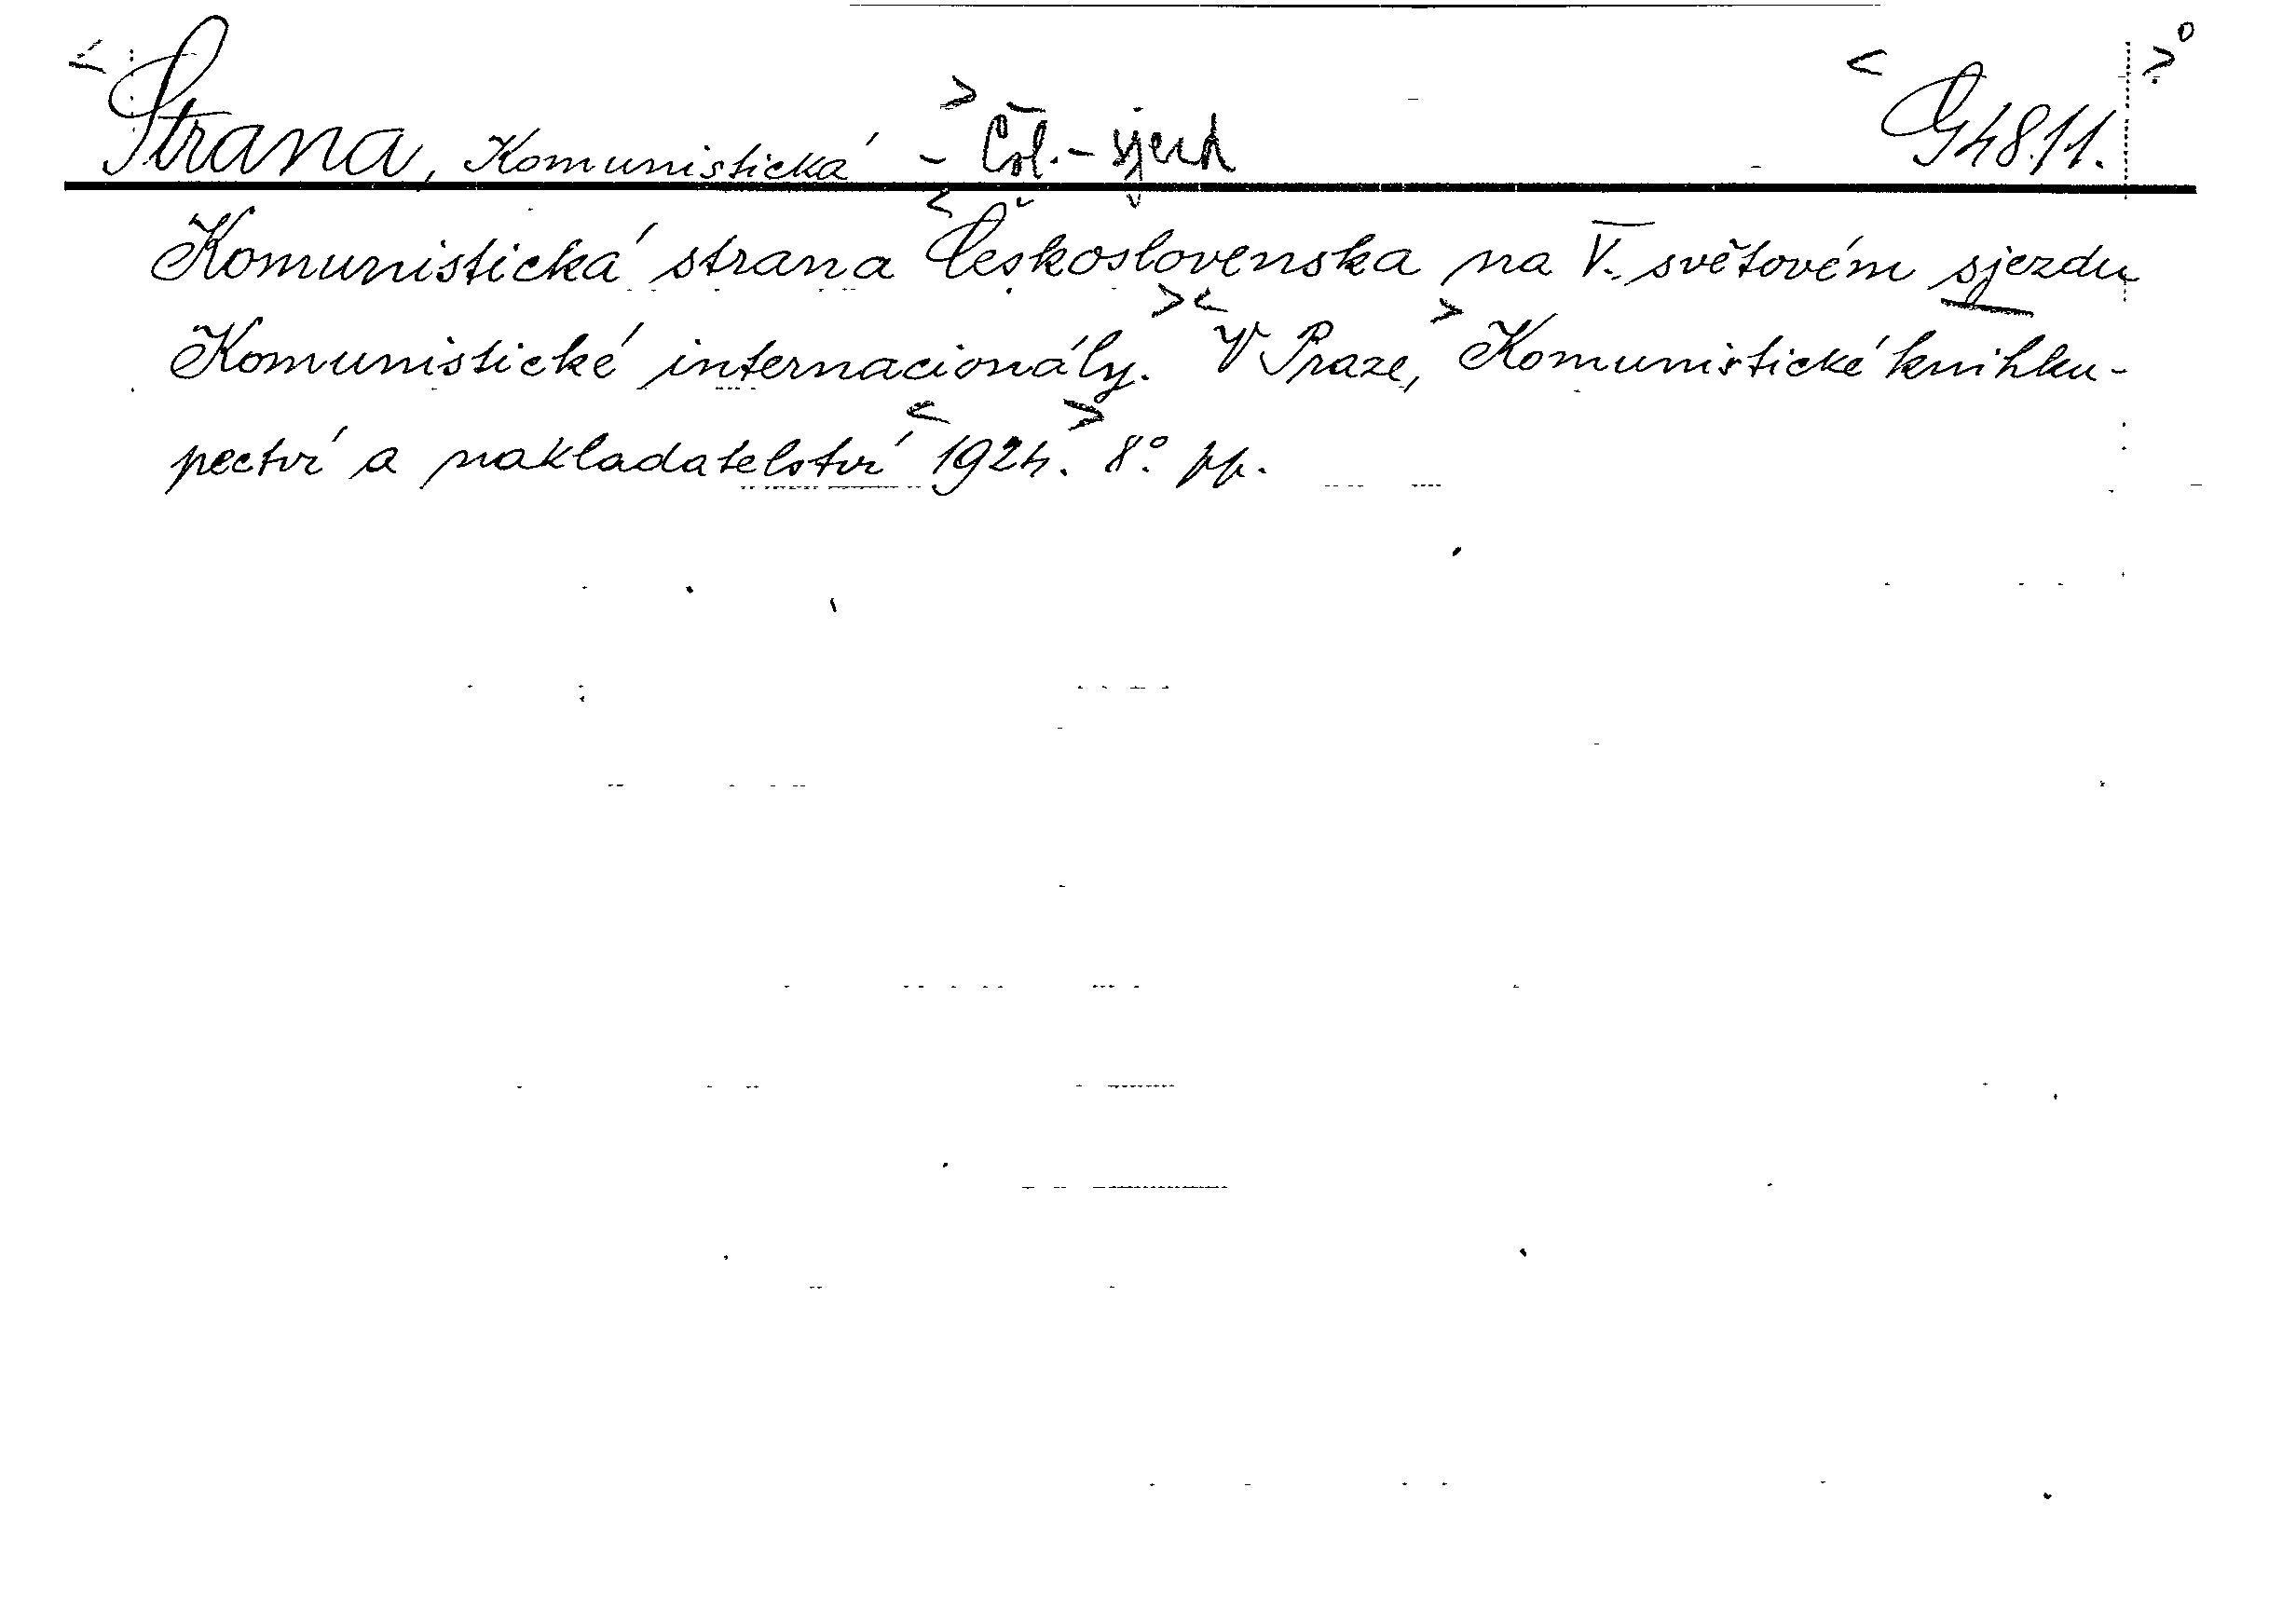 Strana, Komunistická - Čsl. - sjezd G 48.11.
Komunistická strana Československa na V. světovém sjezdu
Komunistické internacionály. V Praze, Komunistické knihku-
pectví a nakladatelství 1924. 8° pp.